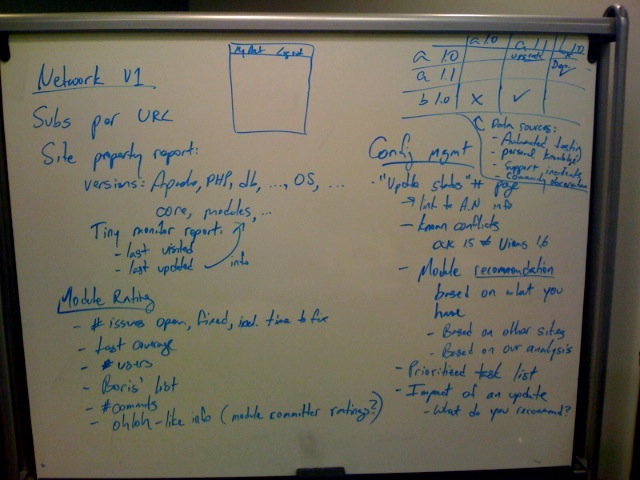 Network V1
Subs per URL
Site property report:
versions: Apache, PHP, db, ..., OS, ...
core, modules, ...
Tiny monitor report:
- last visited
- last updated
info
Module Rating
- # issues open, fixed, incl. time to fix
- Test coverage
- # users
- Boris' list
- # commits
- ohloh-like info (module committer ratings?)
My Acct Logout
a 1.0
a 1.1
b 1.0
a 1.0
a 1.1
upgrade
b 1.0
X
Dep.
X
✓
Data sources:
- Automated testing
- personal knowledge
- Support incidents
- Community documentation
Config mgmt
- "Update status" # page
→ link to A.N info
- known conflicts
Views 1.6
- Module recommendation
based on what you
have
- Based on other sites
- Based on our analysis
- Prioritized task list
- Impact of an update
- What do you recommend?